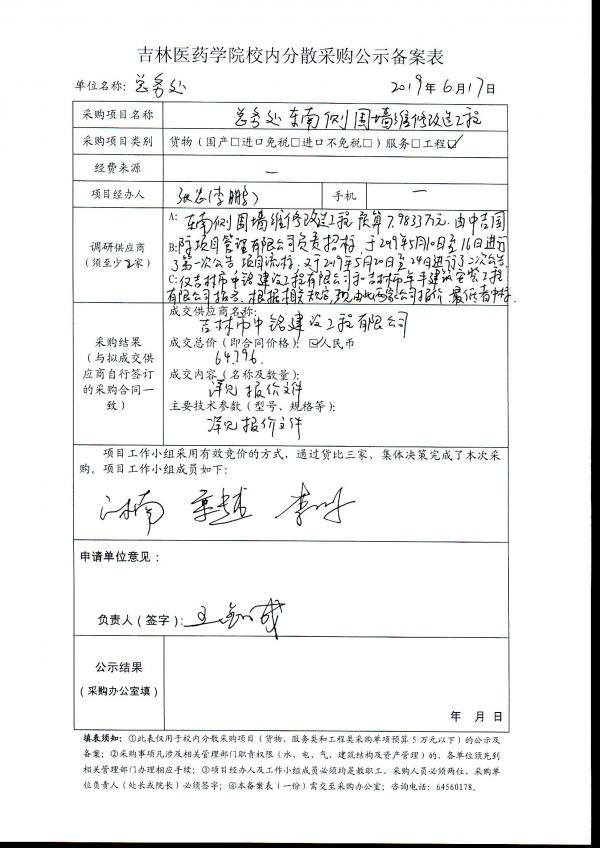 吉林医药学院校内分散采购公示备案表
单位名称：总务处 2019年6月17日
采购项目名称 总务处东南侧围墙维修改造工程
采购项目类别 货物（国产□进口免税□进口不免税□）服务□工程☑
经费来源 一
项目经办人 手机 一
调研供应商
（须至少 家）
A: 东南侧围墙维修改造工程预算7.9833万元.由中吉国
B: 际项目管理有限公司负责招标.于2019年5月10日至16日进行
了第一次公告 项目流标.又于2019年5月20日至24日进行了二次公告.
C: 仅吉林市中铭建设工程有限公司和吉林市 建设安装工程
有限公司报名.根据相关规定,现由此两家公司报价 最低者中标.
采购结果
（与拟成交供
应商自行签订
的采购合同一
致）
成交供应商名称：
吉林市中铭建设工程有限公司
成交总价（即合同价格）：☑人民币
64,796.
成交内容（名称及数量）：
详见报价文件
主要技术参数（型号、规格等）：
详见报价文件
项目工作小组采用有效竞价的方式，通过货比三家、集体决策完成了本次采
购。项目工作小组成员如下：
申请单位意见：
负责人（签字）：
公示结果
（采购办公室填）
年 月 日
填表须知：①此表仅用于校内分散采购项目（货物、服务类和工程类采购单项预算5万元以下）的公示及
备案；②采购事项凡涉及相关管理部门职责权限（水、电、气、建筑结构及资产管理）的，各单位须先到
相关管理部门办理相应手续；③项目经办人及工作小组成员必须均是教职工、采购人员必须两位、采购单
位负责人（处长或院长）必须签字；④本备案表（一份）需交至采购办公室；咨询电话：64560178。